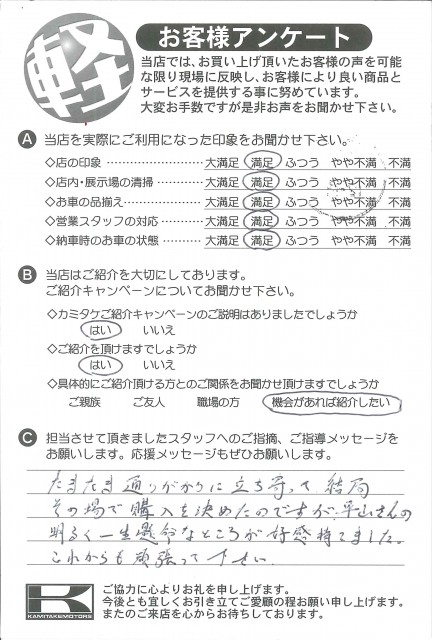 軽
お客様アンケート
当店では、お買い上げ頂いたお客様の声を可能
な限り現場に反映し、お客様により良い商品と
サービスを提供する事に努めています。
大変お手数ですが是非お声をお聞かせ下さい。
A 当店を実際にご利用になった印象をお聞かせ下さい。
◇店の印象 ………………… 大満足 満足 ふつう やや不満 不満
◇店内・展示場の清掃 ………… 大満足 満足 ふつう やや不満 不満
◇お車の品揃え ……………… 大満足 満足 ふつう やや不満 不満
◇営業スタッフの対応 ………… 大満足 満足 ふつう やや不満 不満
◇納車時のお車の状態 ………… 大満足 満足 ふつう やや不満 不満
B 当店はご紹介を大切にしております。
ご紹介キャンペーンについてお聞かせ下さい。
◇カミタケご紹介キャンペーンのご説明はありましたでしょうか
はい いいえ
◇ご紹介を頂けますでしょうか
はい いいえ
◇具体的にご紹介頂ける方とのご関係をお聞かせ頂けますでしょうか
ご親族 ご友人 職場の方 機会があれば紹介したい
C 担当させて頂きましたスタッフへのご指摘、ご指導メッセージを
お願いします。応援メッセージもぜひお願いします。
たまたま通りがかりに立ち寄って、結局
その場で購入を決めたのですが、平山さんの
明るく一生懸命なところが好感持てました。
これからも頑張って下さい。
KAMITAKEMOTORS
ご協力に心よりお礼を申し上げます。
今後とも宜しくお引き立てご愛顧の程お願い申し上げます。
またのご来店を心からお待ちしております。